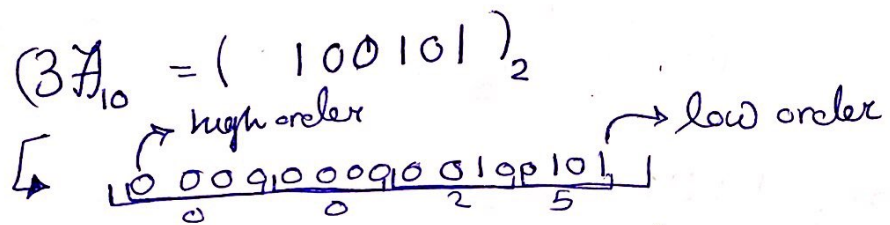 (37)₁₀ = ( 100101 )₂
high order → low order
0 0 0 0 0 0 0 0 0 0 1 0 0 1 0 1
0 0 2 5